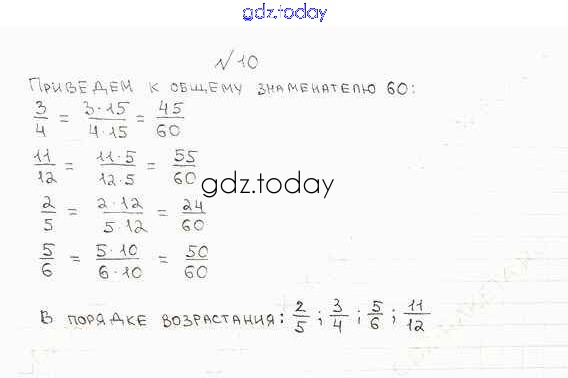 gdz.today
№10
ПРИВЕДЕМ К ОБЩЕМУ ЗНАМЕНАТЕЛЮ 60:
3/4 = 3·15/4·15 = 45/60
11/12 = 11·5/12·5 = 55/60
gdz.today
2/5 = 2·12/5·12 = 24/60
5/6 = 5·10/6·10 = 50/60
В ПОРЯДКЕ ВОЗРАСТАНИЯ: 2/5 ; 3/4 ; 5/6 ; 11/12